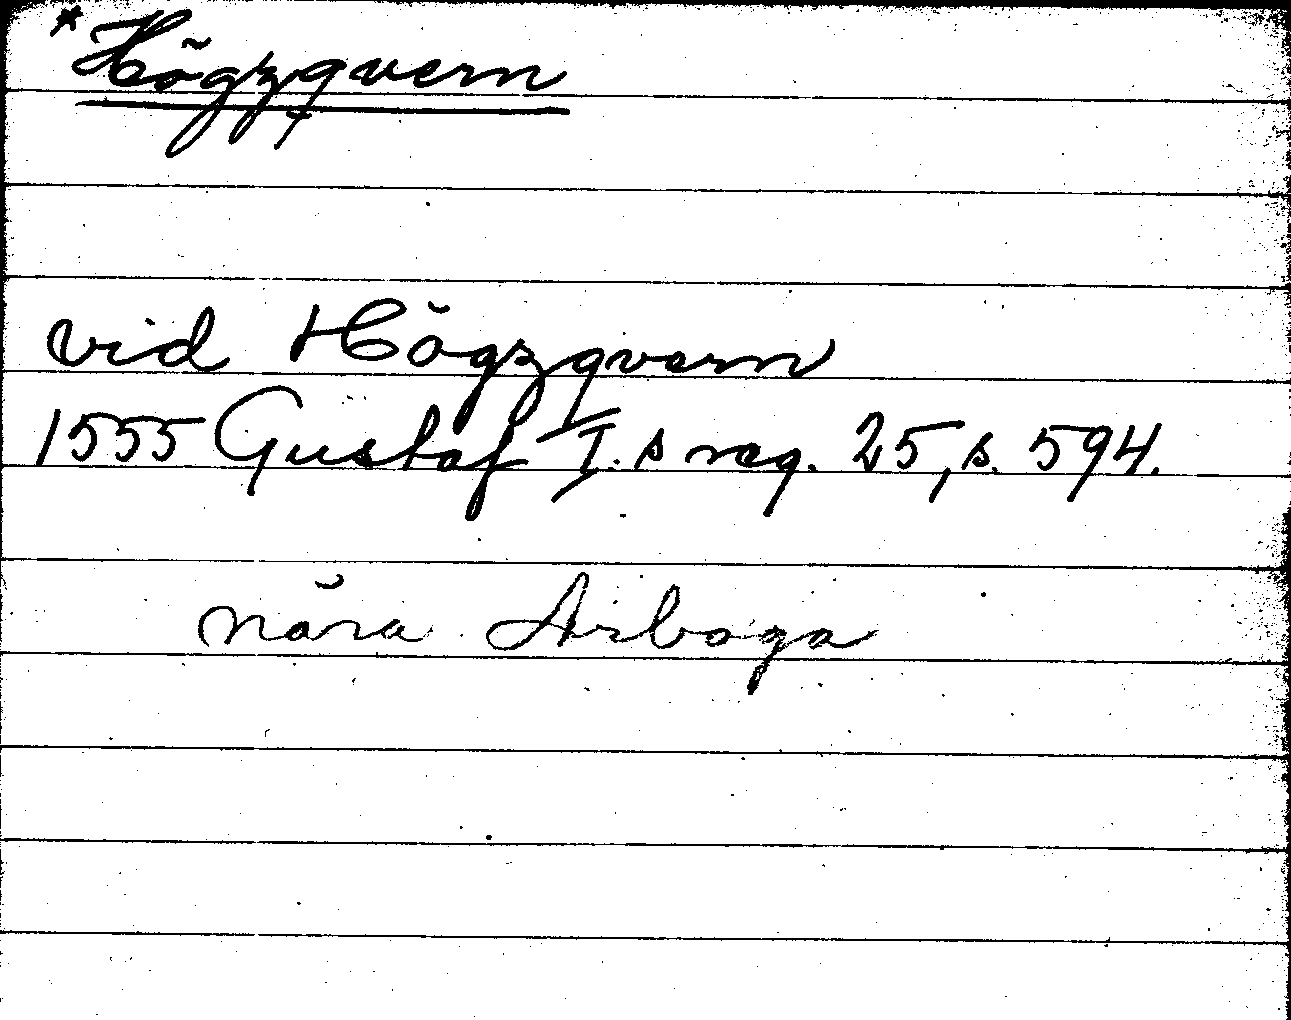 *Högzqvern
vid Högzqvern
1555 Gustaf I:s reg. 25, s. 594.
nära Arboga